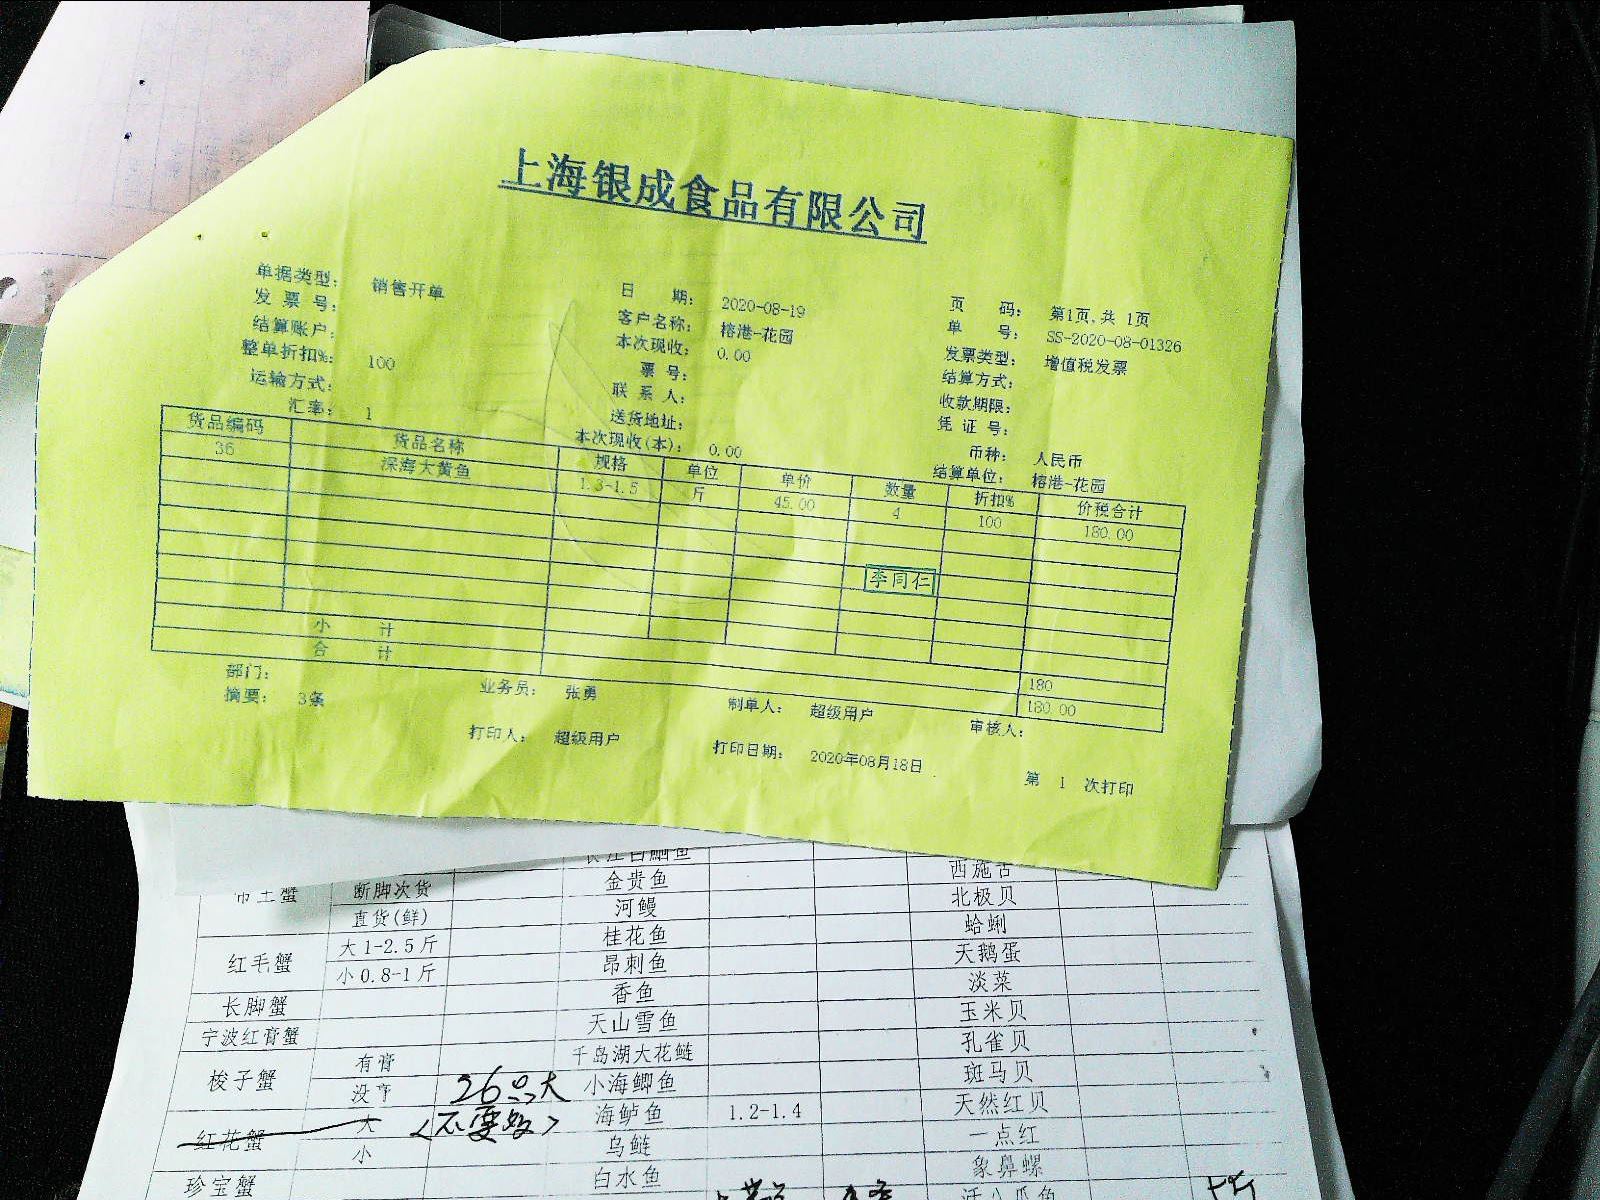 上海银成食品有限公司
单据类型： 销售开单 日 期： 2020-08-19 页 码： 第1页,共 1页
发 票 号： 客户名称： 榕港-花园 单 号： SS-2020-08-01326
结算账户： 本次现收： 0.00 发票类型： 增值税发票
整单折扣%： 100 票 号： 结算方式：
运输方式： 联 系 人： 收款期限：
汇率： 1 送货地址： 凭 证 号：
本次现收(本)： 0.00 币种： 人民币
结算单位： 榕港-花园
货品编码 货品名称 规格 单位 单价 数量 折扣% 价税合计
36 深海大黄鱼 1.3-1.5 斤 45.00 4 100 180.00
李同仁
小 计 180
合 计 180.00
部门： 业务员： 张勇 制单人： 超级用户 审核人：
摘要： 3条 打印人： 超级用户 打印日期： 2020年08月18日 第 1 次打印
断脚次货 金贵鱼 北极贝
直货(鲜) 河鳗 蛤蜊
红毛蟹 大1-2.5斤 桂花鱼 天鹅蛋
小0.8-1斤 昂刺鱼 淡菜
长脚蟹 香鱼 玉米贝
宁波红膏蟹 天山雪鱼 孔雀贝
梭子蟹 有膏 千岛湖大花鲢 斑马贝
没 26只大 小海鲫鱼 天然红贝
红花蟹 大 海鲈鱼 1.2-1.4 一点红
小 乌鲢 象鼻螺
珍宝蟹 白水鱼